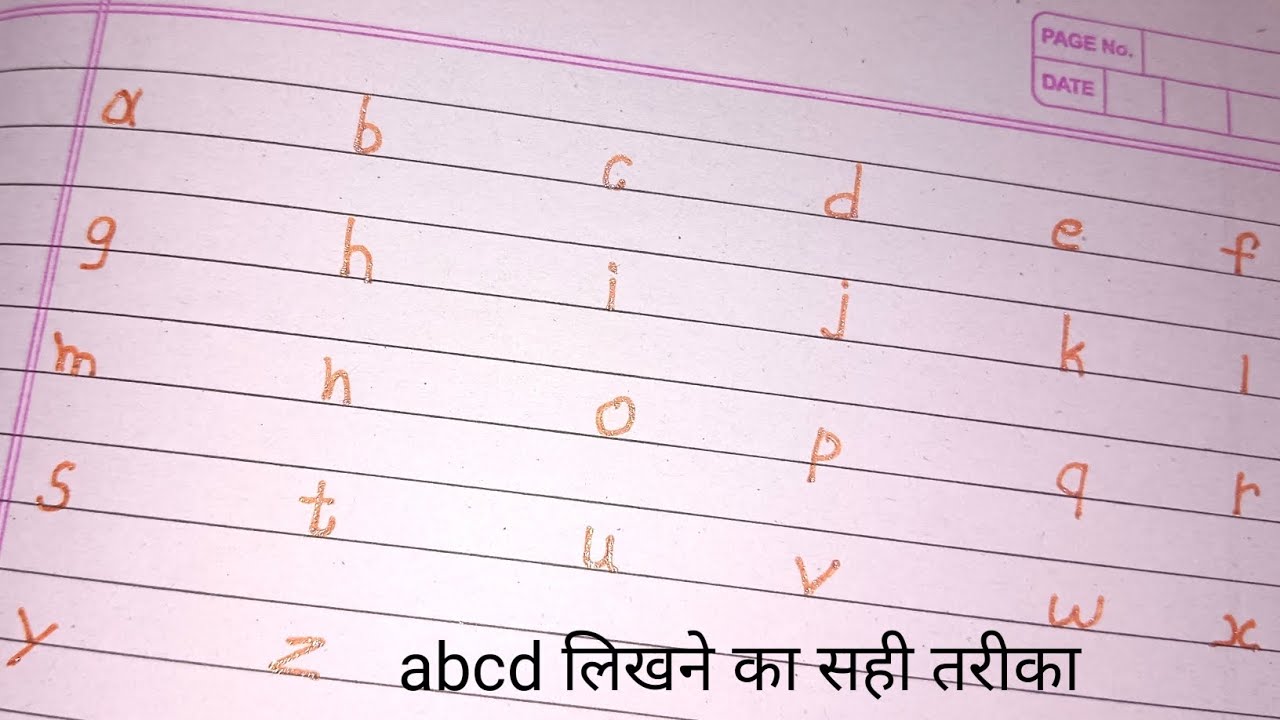 PAGE No.
DATE
a b c d e f
g h i j k l
m n o p q r
s t u v w x
y z
abcd लिखने का सही तरीका